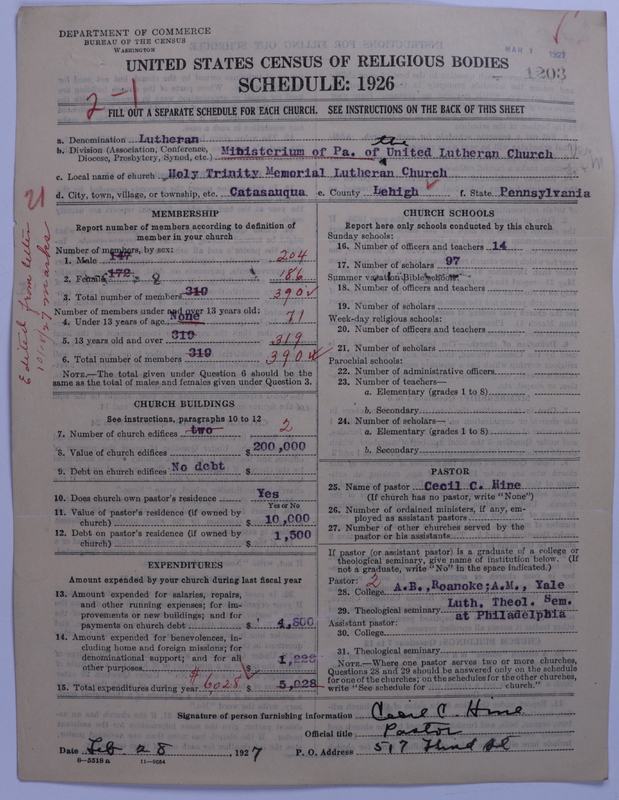 DEPARTMENT OF COMMERCE
BUREAU OF THE CENSUS
WASHINGTON
MAR 1 1927
1203
UNITED STATES CENSUS OF RELIGIOUS BODIES
SCHEDULE: 1926
2-1
FILL OUT A SEPARATE SCHEDULE FOR EACH CHURCH. SEE INSTRUCTIONS ON THE BACK OF THIS SHEET
a. Denomination Lutheran
b. Division (Association, Conference, Diocese, Presbytery, Synod, etc.) Ministerium of Pa. of the United Lutheran Church
c. Local name of church Holy Trinity Memorial Lutheran Church
d. City, town, village, or township, etc. Catasauqua e. County Lehigh f. State Pennsylvania
21
Edited from letter
MEMBERSHIP
Report number of members according to definition of
member in your church
Number of members, by sex:
1. Male 147 204
2. Female 172 186
3. Total number of members 319 390
Number of members under and over 13 years old:
4. Under 13 years of age None 71
5. 13 years old and over 319 319
6. Total number of members 319 390
NOTE.—The total given under Question 6 should be
same as the total of males and females given under Question 3.
CHURCH BUILDINGS
See instructions, paragraphs 10 to 12
7. Number of church edifices two 2
8. Value of church edifices $ 200,000
9. Debt on church edifices No debt $
10. Does church own pastor's residence Yes
Yes or No
11. Value of pastor's residence (if owned by
church) $ 10,000
12. Debt on pastor's residence (if owned by
church) $ 1,500
EXPENDITURES
Amount expended by your church during last fiscal year
13. Amount expended for salaries, repairs,
and other running expenses; for im-
provements or new buildings; and for
payments on church debt $ 4,800
14. Amount expended for benevolences, in-
cluding home and foreign missions; for
denominational support; and for all
other purposes $ 1,228
15. Total expenditures during year $6028 $ 5,028
CHURCH SCHOOLS
Report here only schools conducted by this church
Sunday schools:
16. Number of officers and teachers 14
17. Number of scholars 97
Summer vacation Bible schools:
18. Number of officers and teachers
19. Number of scholars
Week-day religious schools:
20. Number of officers and teachers
21. Number of scholars
Parochial schools:
22. Number of administrative officers
23. Number of teachers—
a. Elementary (grades 1 to 8)
b. Secondary
24. Number of scholars—
a. Elementary (grades 1 to 8)
b. Secondary
PASTOR
25. Name of pastor Cecil C. Hine
(If church has no pastor, write "None")
26. Number of ordained ministers, if any, em-
ployed as assistant pastors
27. Number of other churches served by the
pastor or his assistants
If pastor (or assistant pastor) is a graduate of a college or
theological seminary, give name of institution below. (If
not a graduate, write "No" in the space indicated.)
Pastor: 2
28. College A.B., Roanoke; A.M., Yale
29. Theological seminary Luth. Theol. Sem.
at Philadelphia
Assistant pastor:
30. College
31. Theological seminary
NOTE.—Where one pastor serves two or more churches,
Questions 28 and 29 should be answered only on the schedule
for one of the churches; on the schedules for the other churches,
write "See schedule for church."
Signature of person furnishing information Cecil C. Hine
Official title Pastor
Date Feb 28 1927 P. O. Address 517 Third St
8—5518a 11—9084